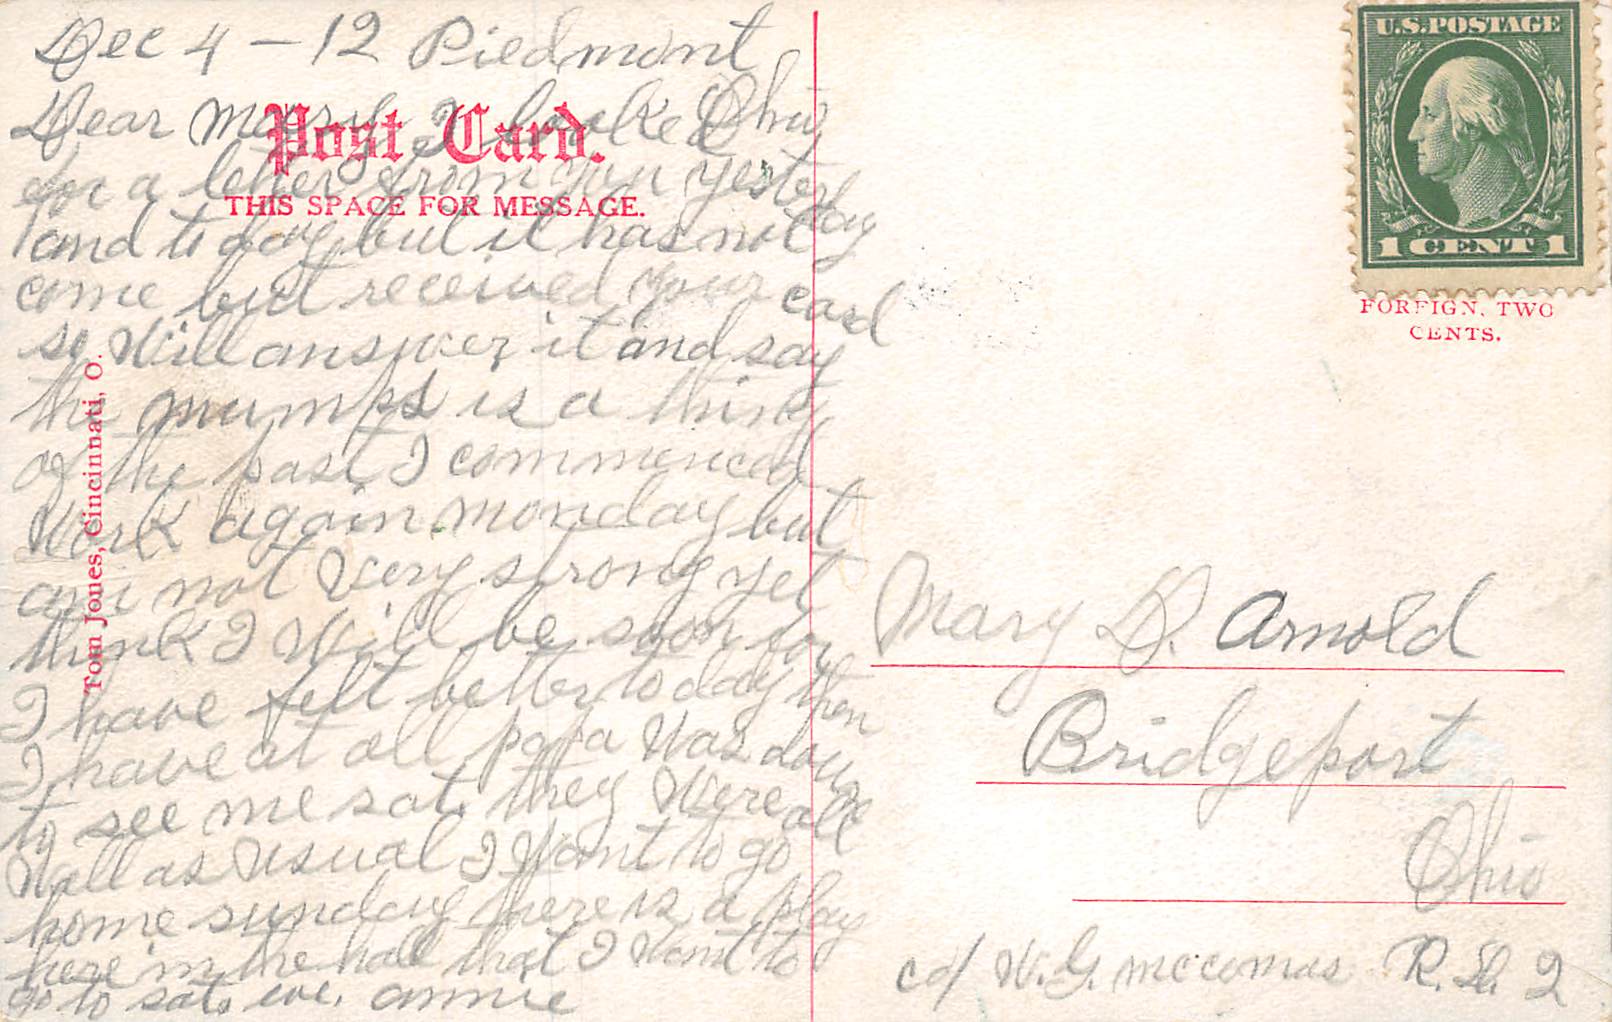 Dec 4 - 12 Piedmont
Ohio
Dear Mary I looked
Post Card.
for a letter from you yesterday
THIS SPACE FOR MESSAGE.
and to day but it has not
come but received your card
so Will answer it and say
the mumps is a thing
of the past I commenced
Work again monday but
am not Very strong yet
think I Will be soon for
I have felt better to day then
I have at all papa Was down
to see me sat. they Were all
Well as usual I Want to go
home sunday there is a play
here in the hall that I Want to
go to sat. eve. annie
Tom Jones, Cincinnati, O.
U.S. POSTAGE
1 CENT 1
FOREIGN, TWO
CENTS.
Mary D. Arnold
Bridgeport
Ohio
c/o W. G. mccomas R. D. 2